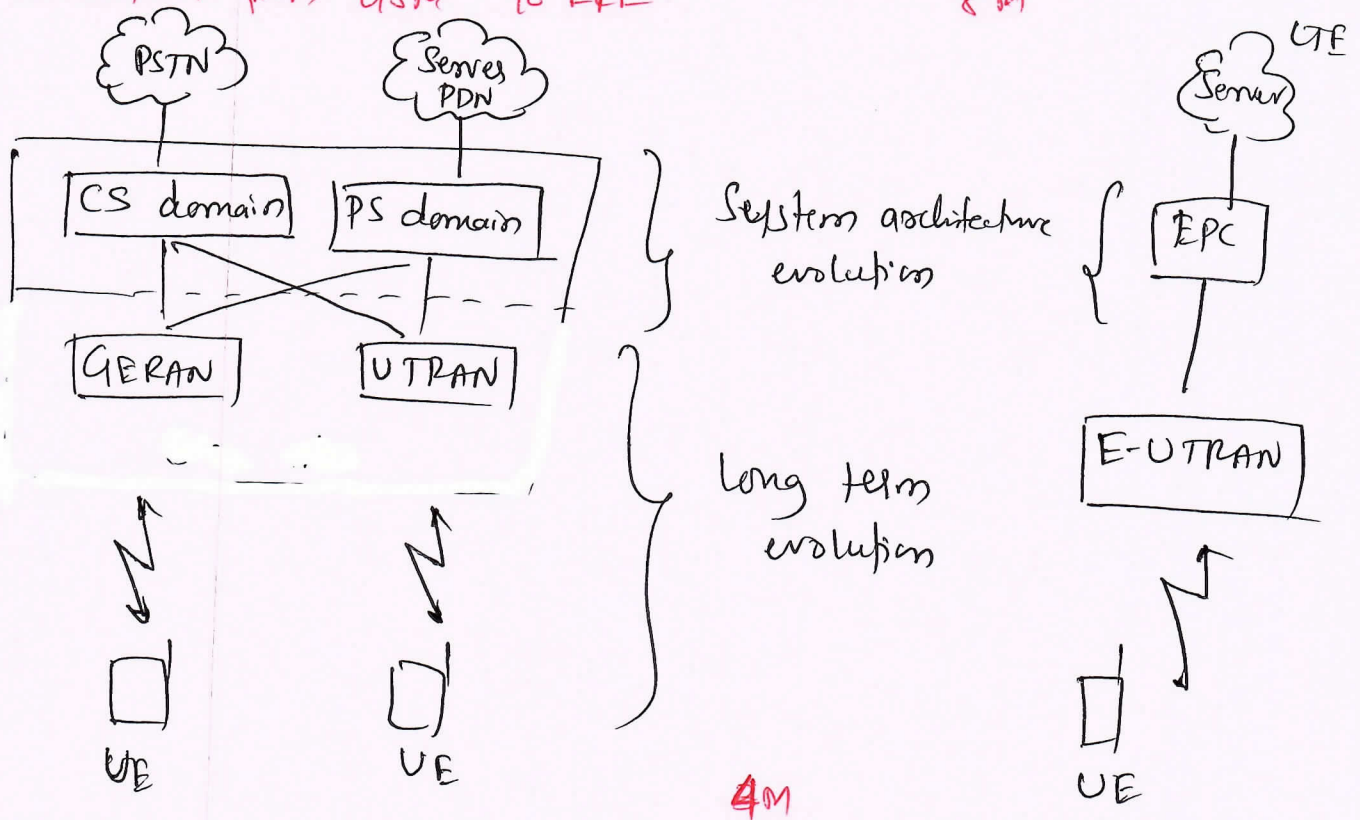 GSM to LTE 8M
PSTN
Server
PDN
LTE
Server
CS domain
PS domain
System architecture
evolution
EPC
GERAN
UTRAN
Long term
evolution
E-UTRAN
UE
UE
UE
4M